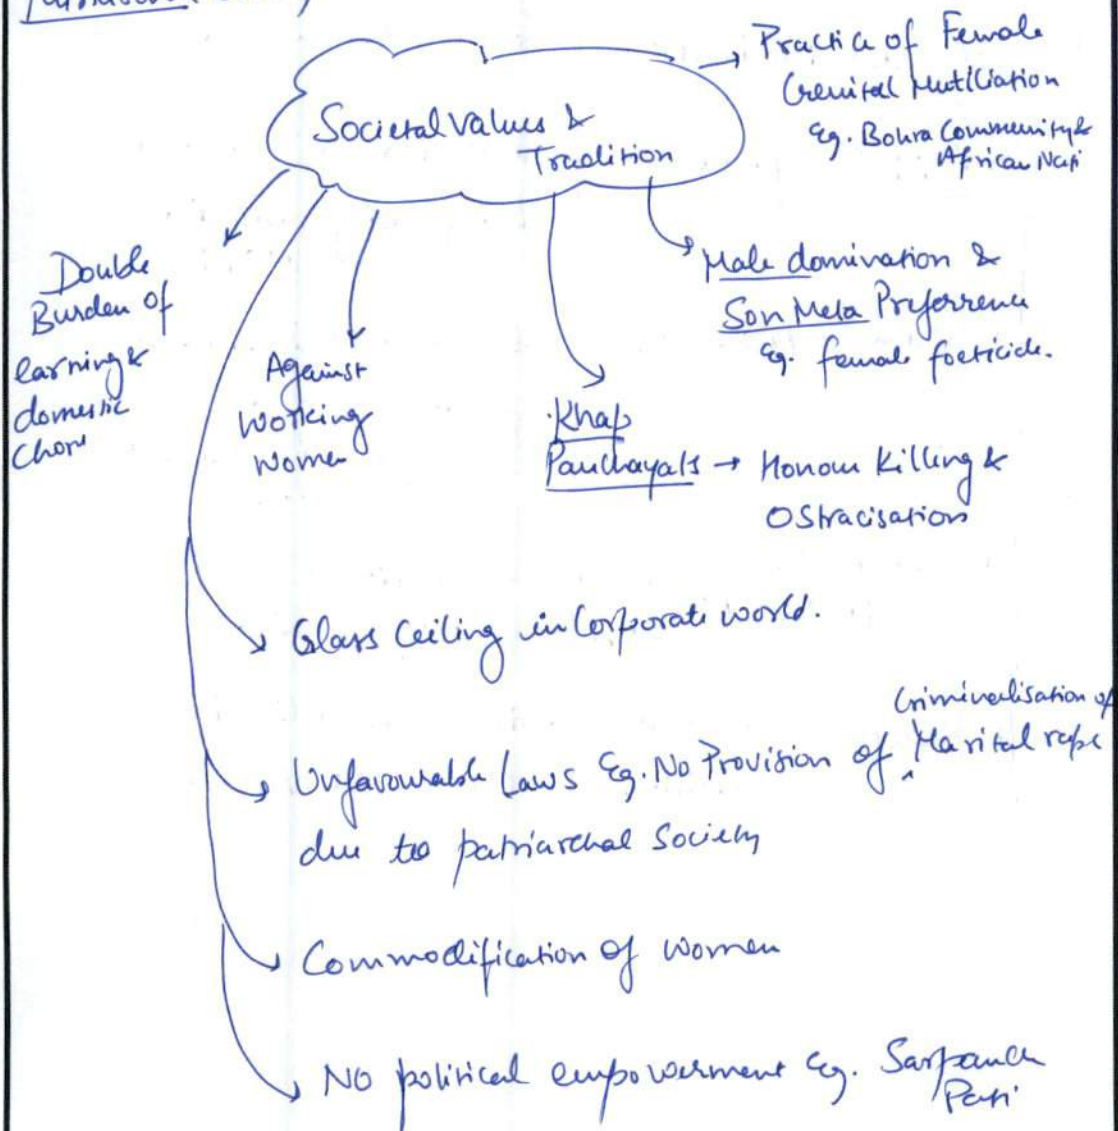 Societal Values &
Tradition
→ Practice of Female
Genital Mutiliation
Eg. Bohra Community &
African
Double
Burden of
earning &
domestic
Chore
Against
Working
Women
Khap
Panchayats → Honour Killing &
Ostracisation
Male domination &
Son Meta Preferrence
Eg. female foeticide.
Glass Ceiling in Corporate world.
Criminalisation of
Unfavourable Laws Eg. No Provision of ‸ Marital rape
due to patriarchal Society
Commodification of women
No political empowerment Eg. Sarpanch
Pati